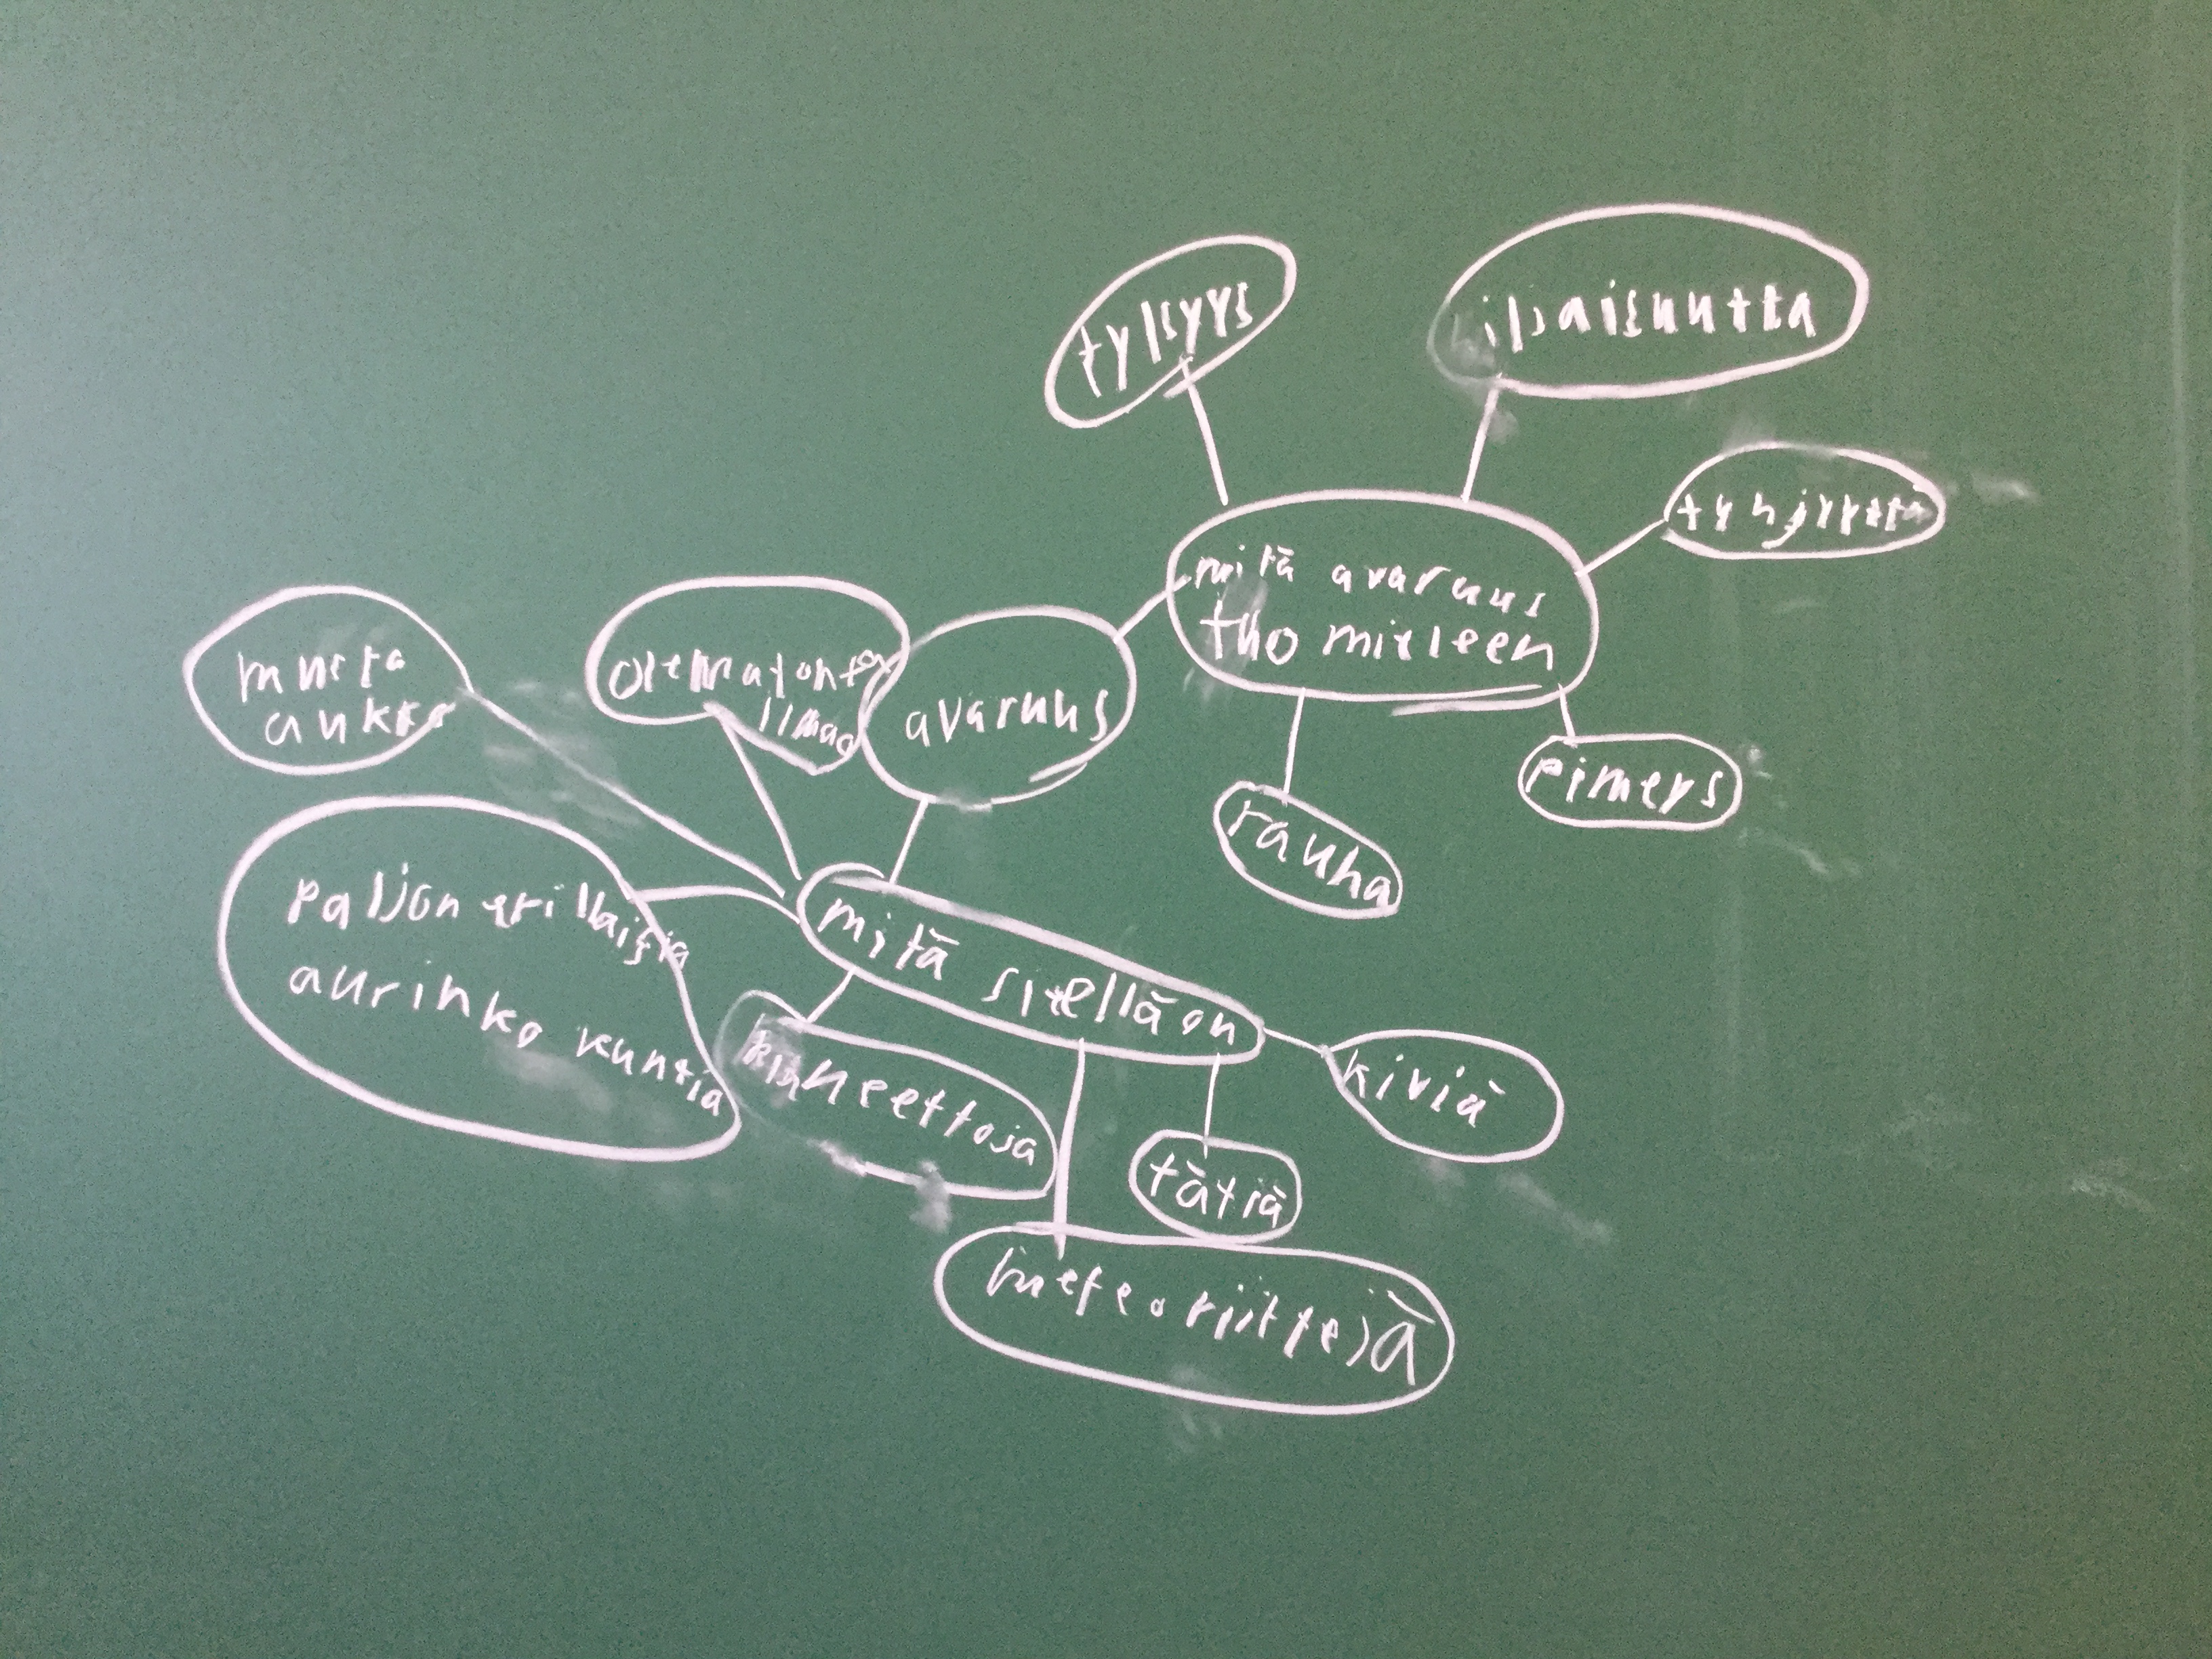 tylsyys
hiljaisuutta
tyhjyyttä
mitä avaruus
tuo mieleen
musta
aukko
olematonta
ilmaa
avaruus
pimeys
rauha
paljon erillaisia
aurinko kuntia
mitä siellä on
kiviä
tätiä
meteoriittejä